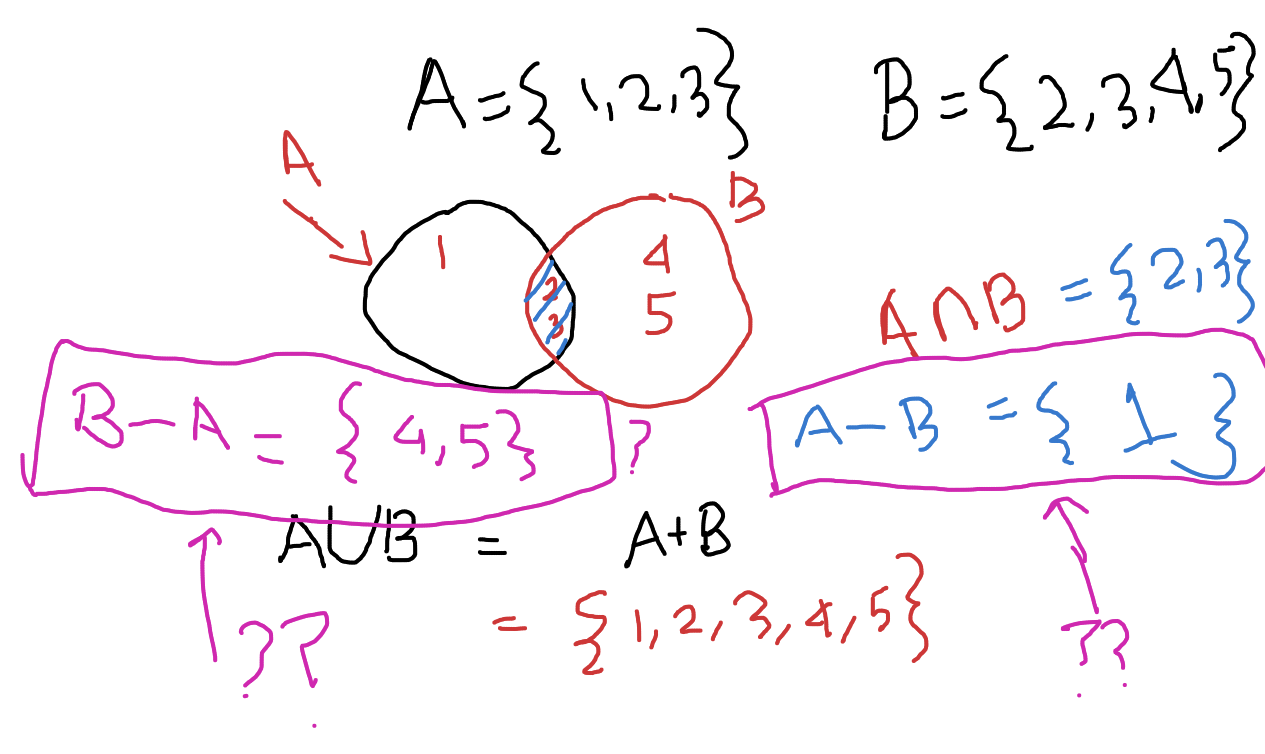 A = {1,2,3} B = {2,3,4,5}
A
B
1
4
2
5
3
A∩B = {2,3}
B-A = {4,5} ?
A-B = {1}
A∪B = A+B
= {1,2,3,4,5}
??
??